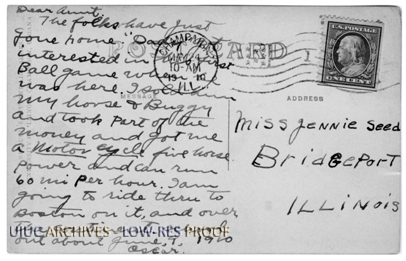 Dear Aunt,
The folks have Just
gone home. 
interested in first
Ball game when
was here. I sold
my horse & Buggy
and took Part of the
money and got me
a Motor cycle five horse
Power and can run
60 mi Per hour. I am
going to ride thru to
Boston on it, and over
out about June, 7, 1910
Oscar.
POST CARD
CHAMPAIGN
10-AM
1910
ILL.
MESSAGE
ADDRESS
U.S. POSTAGE
ONE CENT
Miss Jennie Seed
Bridgeport
ILLINOIS
UIUC ARCHIVES - LOW-RES PROOF